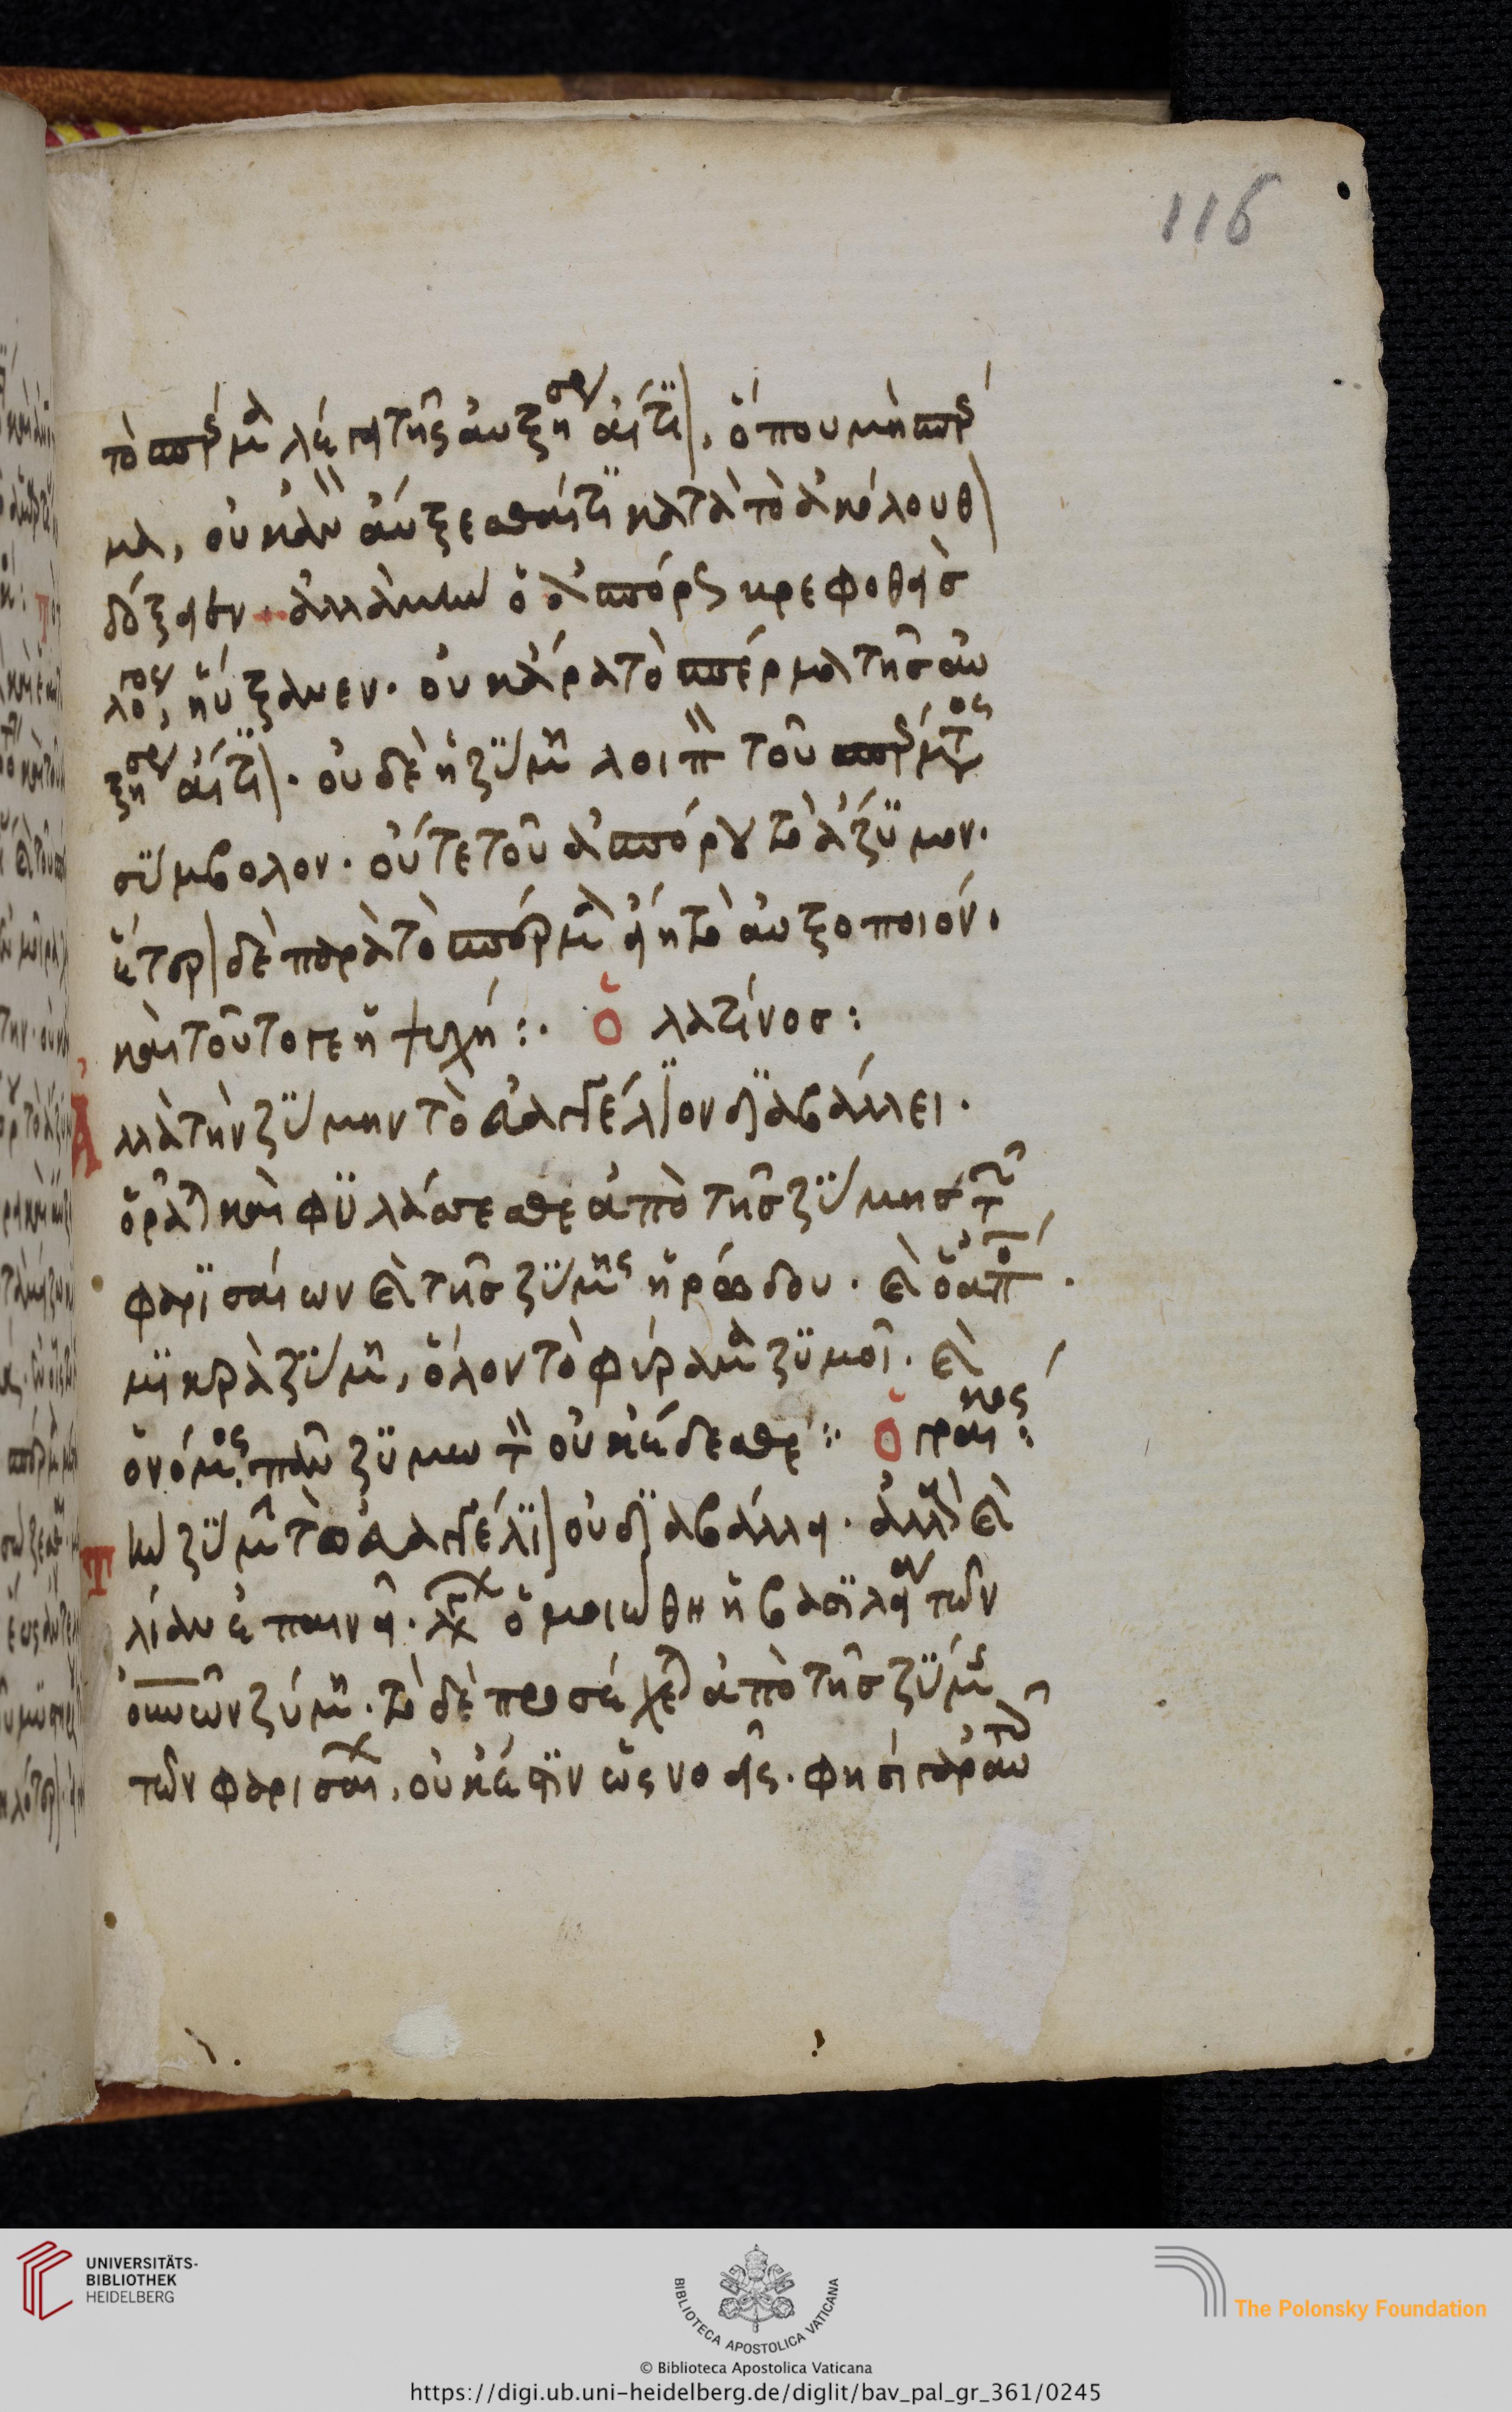 116
τὸ σπέρμα λέγει τῆς αὐξήσεως αἴτιον, ὅπου μὴ σπέρ
μα, οὐκ ἂν αὔξεσθαί τι κατὰ τὸ ἀκόλουθον
δόξειεν. ἀλλὰ μὴν ὁ ἄσπορος
λόγος, ηὔξανεν. οὐκ ἄρα τὸ σπέρμα τῆς αὐ
ξήσεως αἴτιον. οὐδὲ ἡ ζΰμη λοιπὸν τοῦ σπέρματος
σΰμβολον. οὔτε τοῦ ἀσπόρου τὸ ἄζυμον.
ἕτερον δὲ παρὰ τὸ σπέρμα εἴη τὸ αὐξοποιόν.
καὶ τοῦτό γε ἡ ψυχή:. ὁ λατίνοσ:
Ἀλλὰ τὴν ζΰμην τὸ εὐαγγέλιον διαβάλλει.
ὁρᾶτε καὶ φϋλάσσεσθε ἀπὸ τῆσ ζΰμησ τῶν
φαρϊσαίων καὶ τῆσ ζΰμης ἡρώδου. καὶ ὁ ἀπόστολος.
μϊκρὰ ζΰμη, ὅλον τὸ φύραμα ζϋμοῖ. καὶ
ὁ νόμος. πᾶν ζϋμωτὸν οὐκ ἔδεσθε:. ὁ γραικός:
Τὴν ζΰμην τὸ εὐαγγέλιον οὐ διαβάλλει. ἀλλὰ καὶ
λίαν ἐπαινεῖ. ὁμοιώθη ἡ βασϊλεία τῶν
οὐρανῶν ζύμῃ. τὸ δὲ προσέχετε ἀπὸ τῆσ ζΰμης
τῶν φαρισαίων, οὐκ ἔστιν ὡς νοεῖς. φησὶ γὰρ αὐτῶν
UNIVERSITÄTS-
BIBLIOTHEK
HEIDELBERG
BIBLIOTECA APOSTOLICA VATICANA
© Biblioteca Apostolica Vaticana
The Polonsky Foundation
https://digi.ub.uni-heidelberg.de/diglit/bav_pal_gr_361/0245